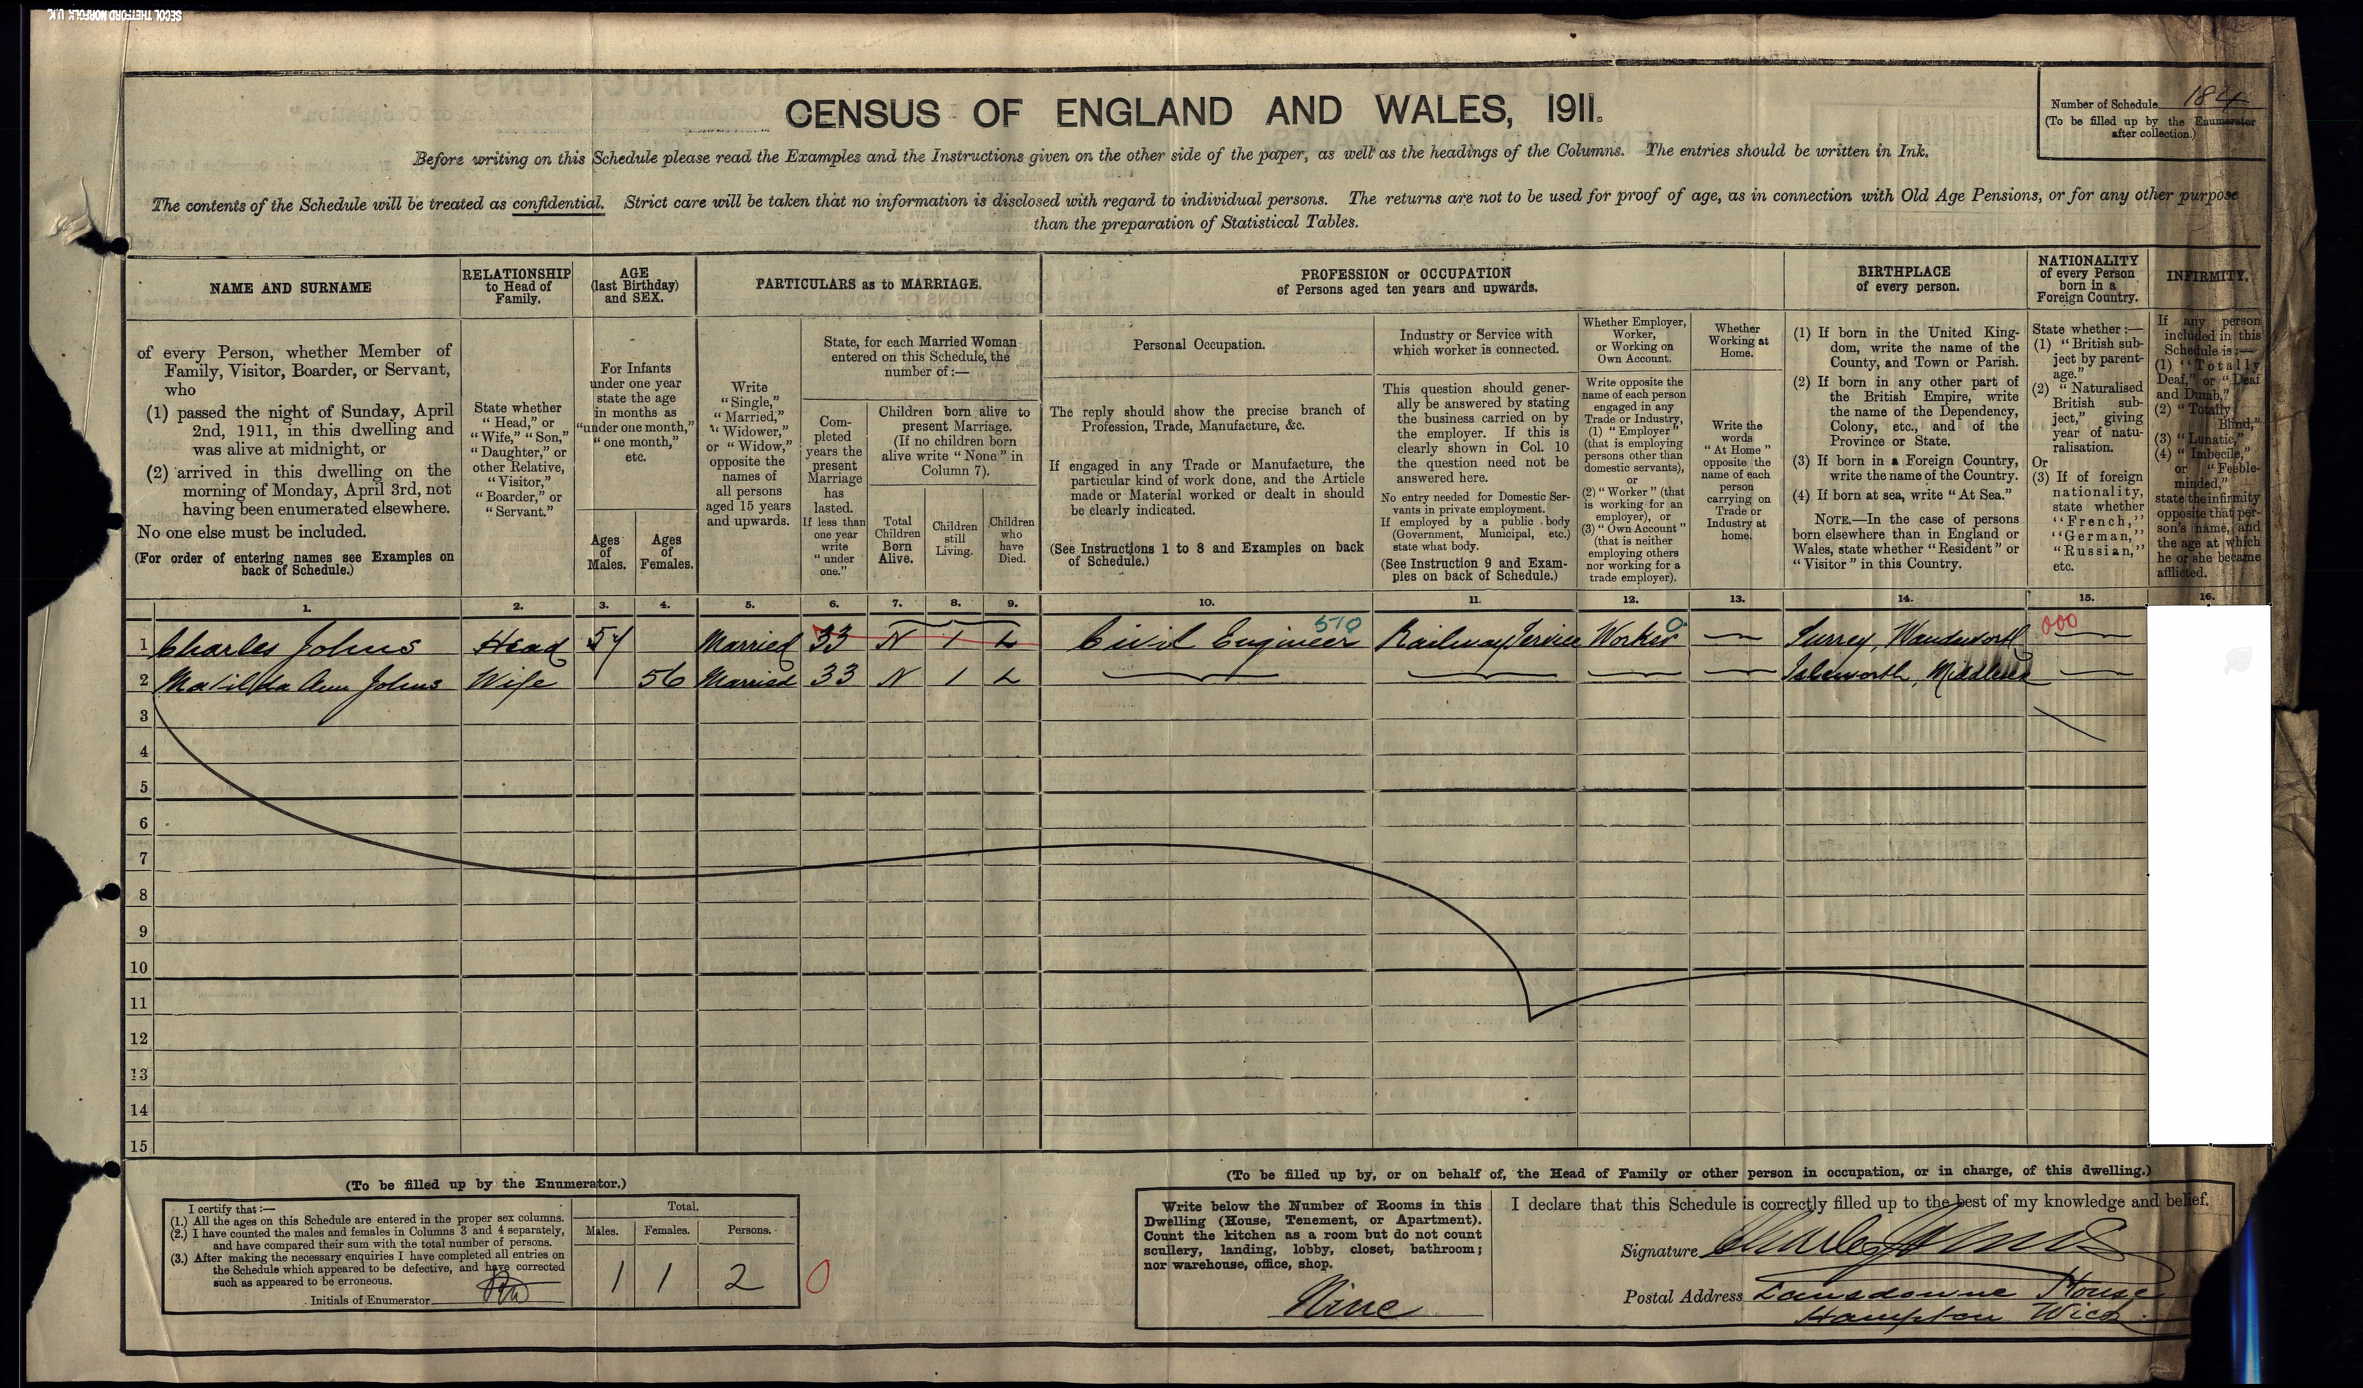 SECOL THETFORD NORFOLK U.K.
CENSUS OF ENGLAND AND WALES, 1911.
Number of Schedule 184
(To be filled up by the Enumerator
after collection.)
Before writing on this Schedule please read the Examples and the Instructions given on the other side of the paper, as well as the headings of the Columns. The entries should be written in Ink.
The contents of the Schedule will be treated as confidential. Strict care will be taken that no information is disclosed with regard to individual persons. The returns are not to be used for proof of age, as in connection with Old Age Pensions, or for any other purpose
than the preparation of Statistical Tables.
NAME AND SURNAME
of every Person, whether Member of
Family, Visitor, Boarder, or Servant,
who
(1) passed the night of Sunday, April
2nd, 1911, in this dwelling and
was alive at midnight, or
(2) arrived in this dwelling on the
morning of Monday, April 3rd, not
having been enumerated elsewhere.
No one else must be included.
(For order of entering names see Examples on
back of Schedule.)
RELATIONSHIP
to Head of
Family.
State whether
"Head," or
"Wife," "Son,"
"Daughter," or
other Relative,
"Visitor,"
"Boarder," or
"Servant."
AGE
(last Birthday)
and SEX.
For Infants
under one year
state the age
in months as
"under one month,"
"one month,"
etc.
Ages
of
Males.
Ages
of
Females.
PARTICULARS as to MARRIAGE.
Write
"Single,"
"Married,"
"Widower,"
or "Widow,"
opposite the
names of
all persons
aged 15 years
and upwards.
State, for each Married Woman
entered on this Schedule, the
number of:—
Com-
pleted
years the
present
Marriage
has
lasted.
If less than
one year
write
"under
one."
Children born alive to
present Marriage.
(If no children born
alive write "None" in
Column 7).
Total
Children
Born
Alive.
Children
still
Living.
Children
who
have
Died.
PROFESSION or OCCUPATION
of Persons aged ten years and upwards.
Personal Occupation.
The reply should show the precise branch of
Profession, Trade, Manufacture, &c.
If engaged in any Trade or Manufacture, the
particular kind of work done, and the Article
made or Material worked or dealt in should
be clearly indicated.
(See Instructions 1 to 8 and Examples on back
of Schedule.)
Industry or Service with
which worker is connected.
This question should gener-
ally be answered by stating
the business carried on by
the employer. If this is
clearly shown in Col. 10
the question need not be
answered here.
No entry needed for Domestic Ser-
vants in private employment.
If employed by a public body
(Government, Municipal, etc.)
state what body.
(See Instruction 9 and Exam-
ples on back of Schedule.)
Whether Employer,
Worker,
or Working on
Own Account.
Write opposite the
name of each person
engaged in any
Trade or Industry,
(1) "Employer"
(that is employing
persons other than
domestic servants),
or
(2) "Worker" (that
is working for an
employer), or
(3) "Own Account"
(that is neither
employing others
nor working for a
trade employer).
Whether
Working at
Home.
Write the
words
"At Home"
opposite the
name of each
person
carrying on
Trade or
Industry at
home.
BIRTHPLACE
of every person.
(1) If born in the United King-
dom, write the name of the
County, and Town or Parish.
(2) If born in any other part of
the British Empire, write
the name of the Dependency,
Colony, etc., and of the
Province or State.
(3) If born in a Foreign Country,
write the name of the Country.
(4) If born at sea, write "At Sea."
NOTE.—In the case of persons
born elsewhere than in England or
Wales, state whether "Resident" or
"Visitor" in this Country.
NATIONALITY
of every Person
born in a
Foreign Country.
State whether:—
(1) "British sub-
ject by parent-
age."
(2) "Naturalised
British sub-
ject," giving
year of natu-
ralisation.
Or
(3) If of foreign
nationality,
state whether
"French,"
"German,"
"Russian,"
etc.
INFIRMITY.
If any person
included in this
Schedule is:—
(1) "Totally
Deaf," or "Deaf
and Dumb,"
(2) "Totally
Blind,"
(3) "Lunatic,"
(4) "Imbecile,"
or "Feeble-
minded,"
state the infirmity
opposite that per-
son's name, and
the age at which
he or she became
afflicted.
1. 2. 3. 4. 5. 6. 7. 8. 9. 10. 11. 12. 13. 14. 15. 16.
510 0 000
1 Charles Johns Head 57 Married 33 N 1 L Civil Engineer Railway Service Worker — Surrey, Wandsworth —
2 Matilda Ann Johns Wife 56 Married 33 N 1 L — — — — Isleworth, Middlesex —
3
4
5
6
7
8
9
10
11
12
13
14
15
(To be filled up by the Enumerator.)
I certify that:—
(1.) All the ages on this Schedule are entered in the proper sex columns.
(2.) I have counted the males and females in Columns 3 and 4 separately,
and have compared their sum with the total number of persons.
(3.) After making the necessary enquiries I have completed all entries on
the Schedule which appeared to be defective, and have corrected
such as appeared to be erroneous.
Initials of Enumerator
Total.
Males. Females. Persons.
1 1 2 0
(To be filled up by, or on behalf of, the Head of Family or other person in occupation, or in charge, of this dwelling.)
Write below the Number of Rooms in this
Dwelling (House, Tenement, or Apartment).
Count the kitchen as a room but do not count
scullery, landing, lobby, closet, bathroom;
nor warehouse, office, shop.
Nine
I declare that this Schedule is correctly filled up to the best of my knowledge and belief.
Signature Charles Johns
Postal Address Lansdowne House
Hampton Wick